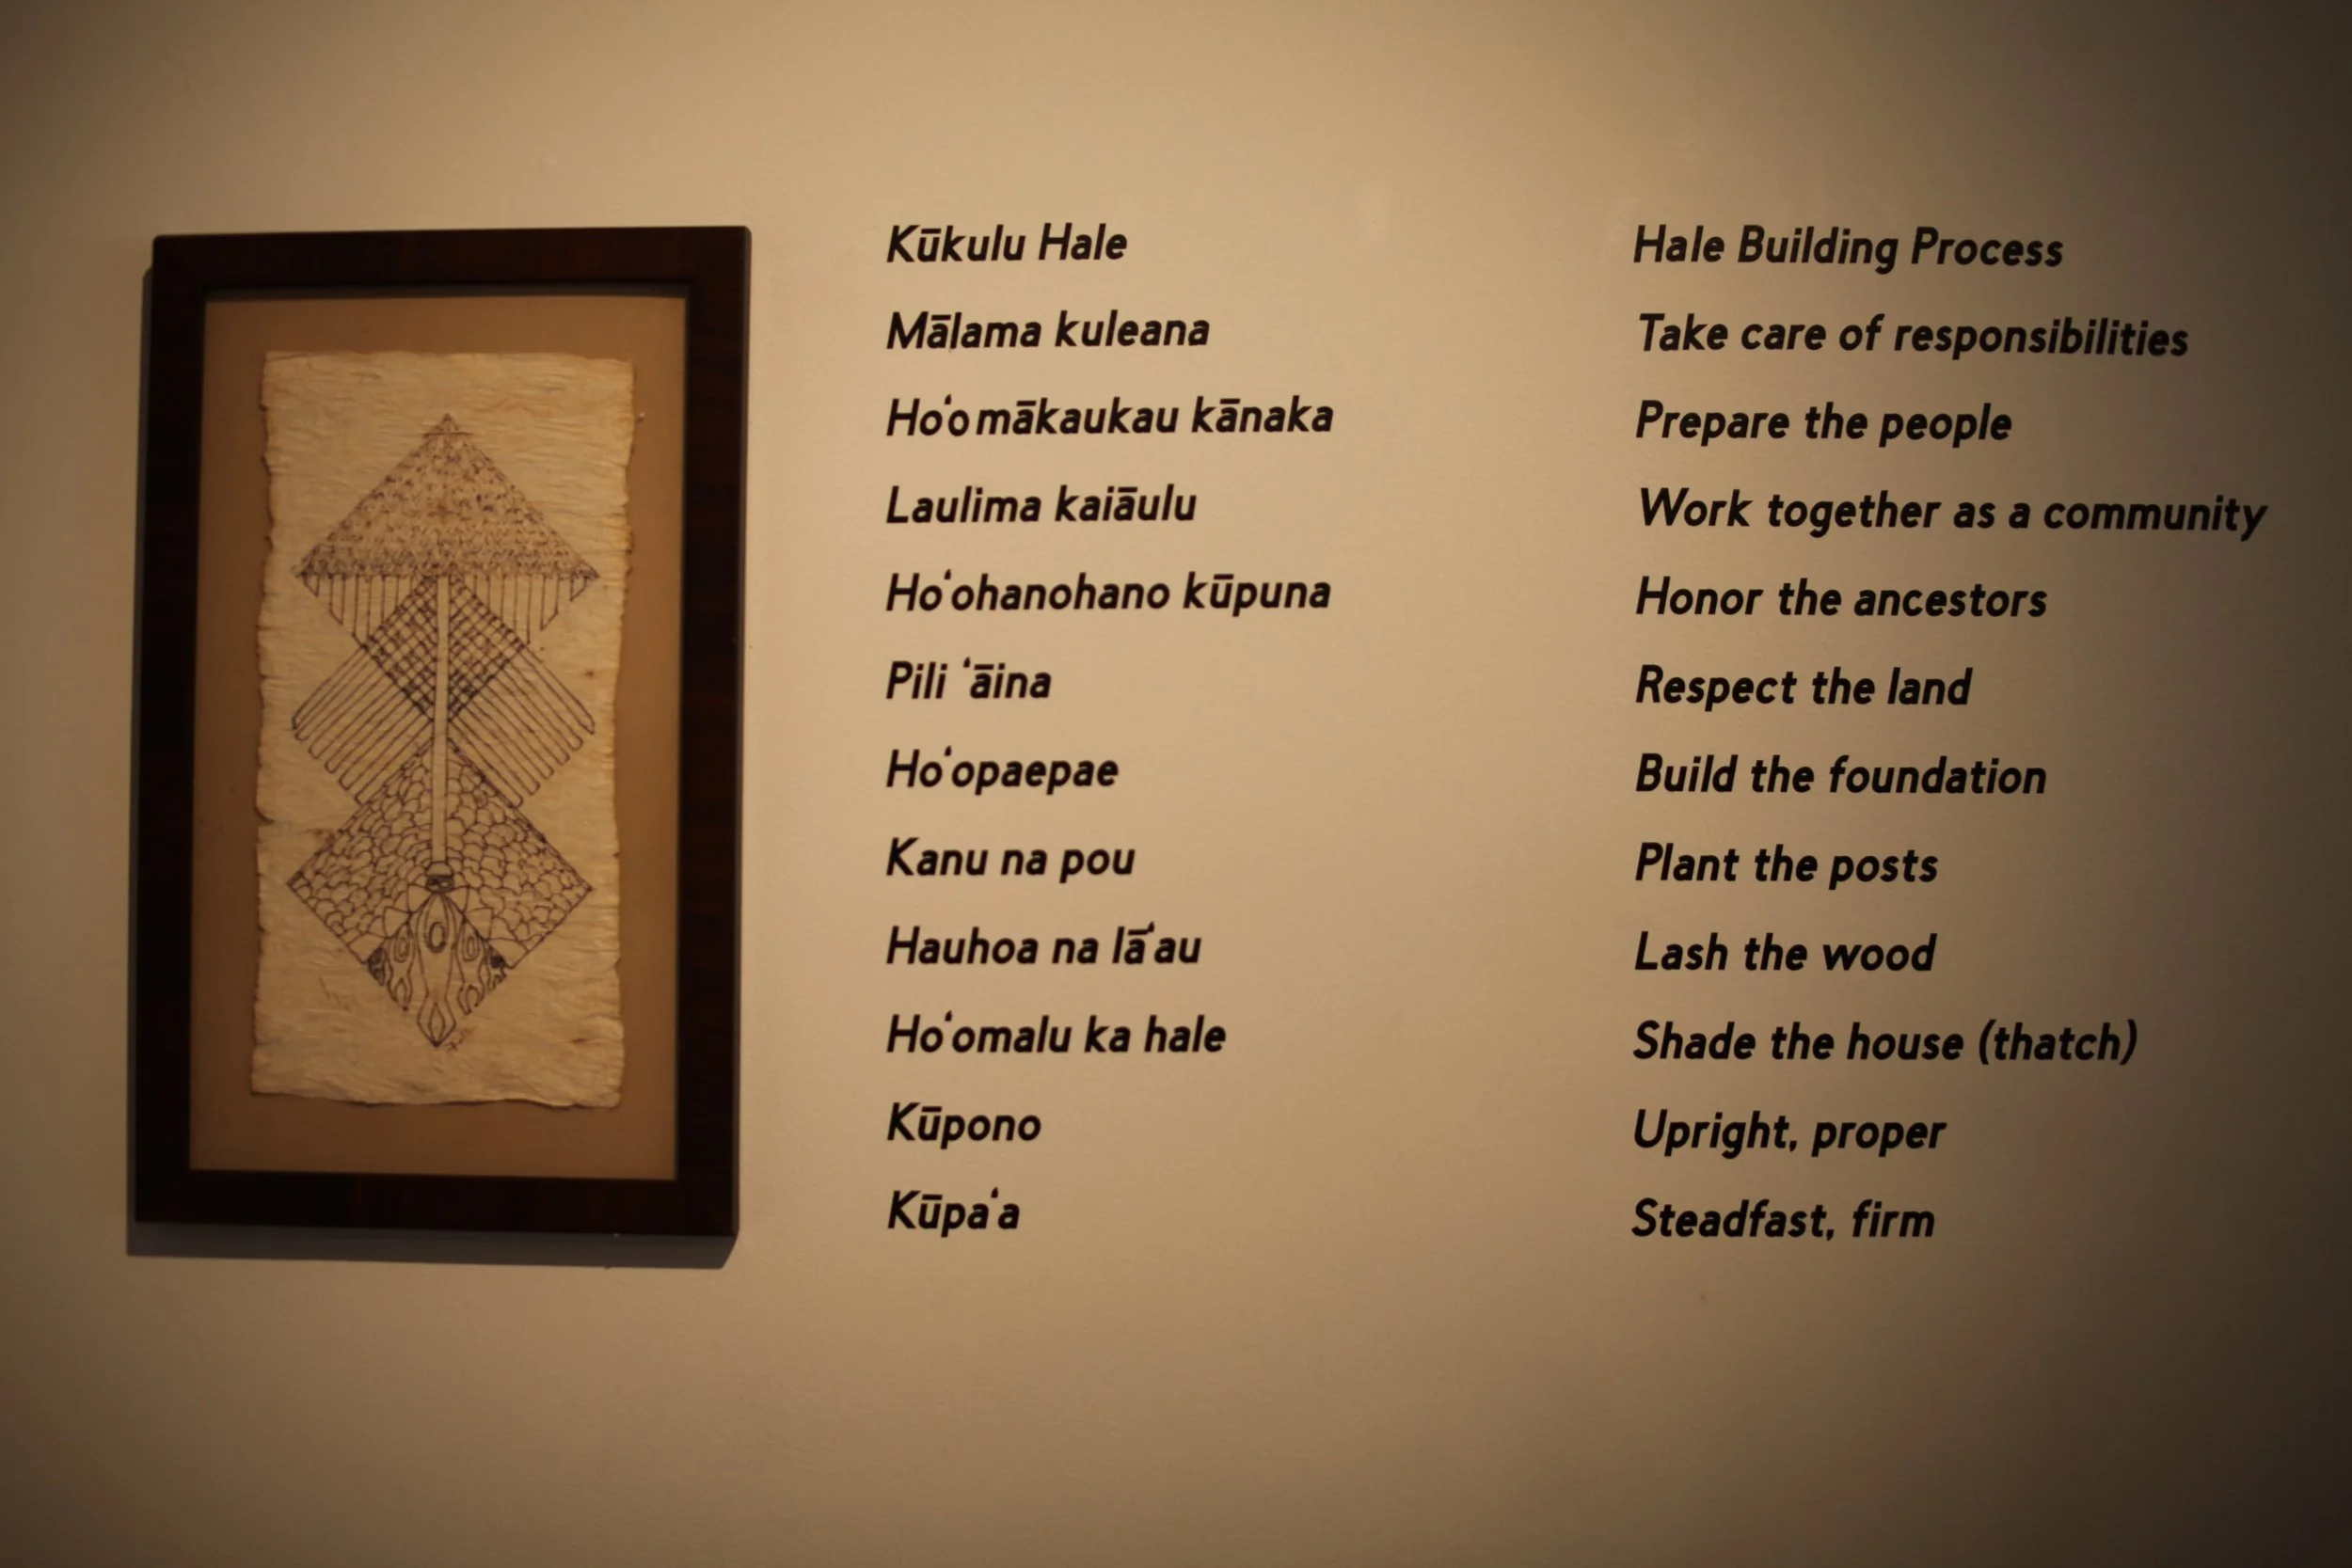 Kūkulu Hale
Mālama kuleana
Hoʻomākaukau kānaka
Laulima kaiāulu
Hoʻohanohano kūpuna
Pili ʻāina
Hoʻopaepae
Kanu na pou
Hauhoa na lāʻau
Hoʻomalu ka hale
Kūpono
Kūpaʻa
Hale Building Process
Take care of responsibilities
Prepare the people
Work together as a community
Honor the ancestors
Respect the land
Build the foundation
Plant the posts
Lash the wood
Shade the house (thatch)
Upright, proper
Steadfast, firm